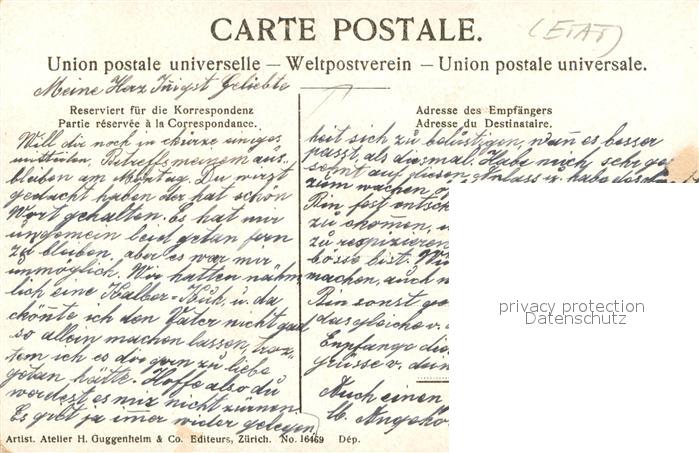 CARTE POSTALE.
(ETAT)
Union postale universelle — Weltpostverein — Union postale universale.
Meine Herz Innigst Geliebte
Reserviert für die Korrespondenz
Partie réservée à la Correspondance.
Will dir noch in chürze einiges
mitteilen, Betreffs meinem aus-
bleiben am Montag. Du wirst
gedacht haben der hat schön
Wort gehalten. Es hat mir
ungemein leid getan fern
zu bleiben, aber es war mir
unmöglich. Wir hatten nähm,
lich eine Kalber-Kuh, u. da
chönte ich den Vater nicht gud
so allein machen lassen, troz,
tem ich es dir gern zu liebe
getan hätte. Hoffe also du
werdest es mir nicht zürnen.
Es grit ja immer wieder gelegen
Adresse des Empfängers
Adresse du Destinataire.
heit sich zu belüstigen, wan es besser
passt, als diesmal. Habe mich sehr ge
auf diesen Anlass u. habe
zum machen
Bin fest
zu chommen,
zu
böse bist.
machen, auch
Bin sonst
dasgleiche v.
Empfange die
grüsse v.
Auch einen
lb.
privacy protection
Datenschutz
Artist. Atelier H. Guggenheim & Co. Editeurs, Zürich. No. 16469 Dép.